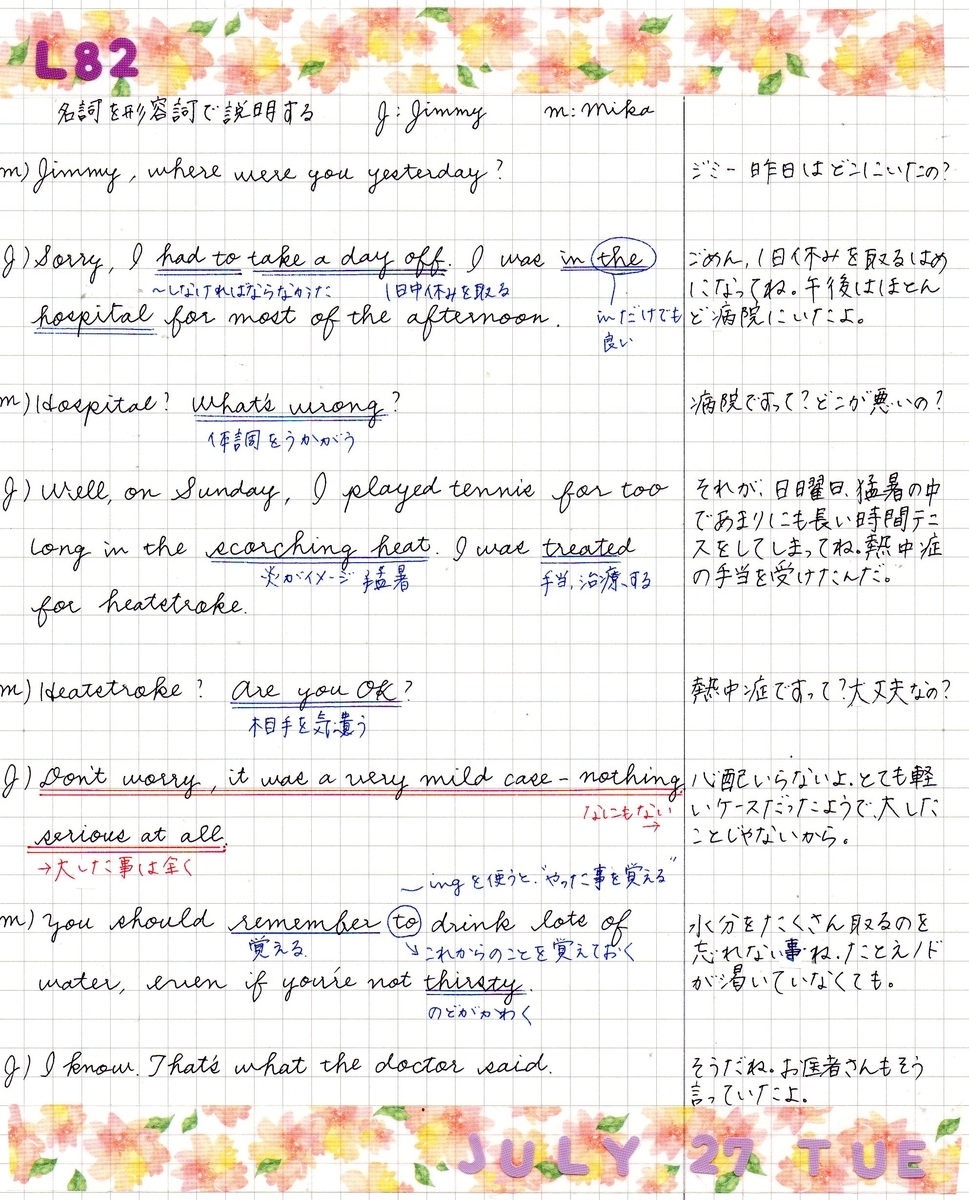 L82
名詞を形容詞で説明する J: Jimmy m: mika
m) Jimmy, where were you yesterday?
ジミー昨日はどこにいたの?
J) Sorry, I had to take a day off. I was in the
〜しなければならなかった 1日中休みを取る
hospital for most of the afternoon.
inだけでも
良い
ごめん、1日休みを取るはめ
になってね。午後はほとん
ど病院にいたよ。
m) Hospital? What's wrong?
体調をうかがう
病院ですって?どこが悪いの?
J) Well, on Sunday, I played tennis for too
long in the scorching heat. I was treated
炎がイメージ 猛暑 手当、治療する
for heatstroke.
それが、日曜日、猛暑の中
であまりにも長い時間テニ
スをしてしまってね。熱中症
の手当を受けたんだ。
m) Heatstroke? Are you OK?
相手を気遣う
熱中症ですって?大丈夫なの?
J) Don't worry, it was a very mild case – nothing
なにもない
→
serious at all.
→大した事は全く
心配いらないよ。とても軽
いケースだったようで、大した
ことじゃないから。
〜ingを使うと、"やった事を覚える"
m) You should remember to drink lots of
覚える これからのことを覚えておく
water, even if you're not thirsty.
のどがかわく
水分をたくさん取るのを
忘れない事ね、たとえノド
が渇いていなくても。
J) I know. That's what the doctor said.
そうだね。お医者さんもそう
言っていたよ。
JULY 27 TUE